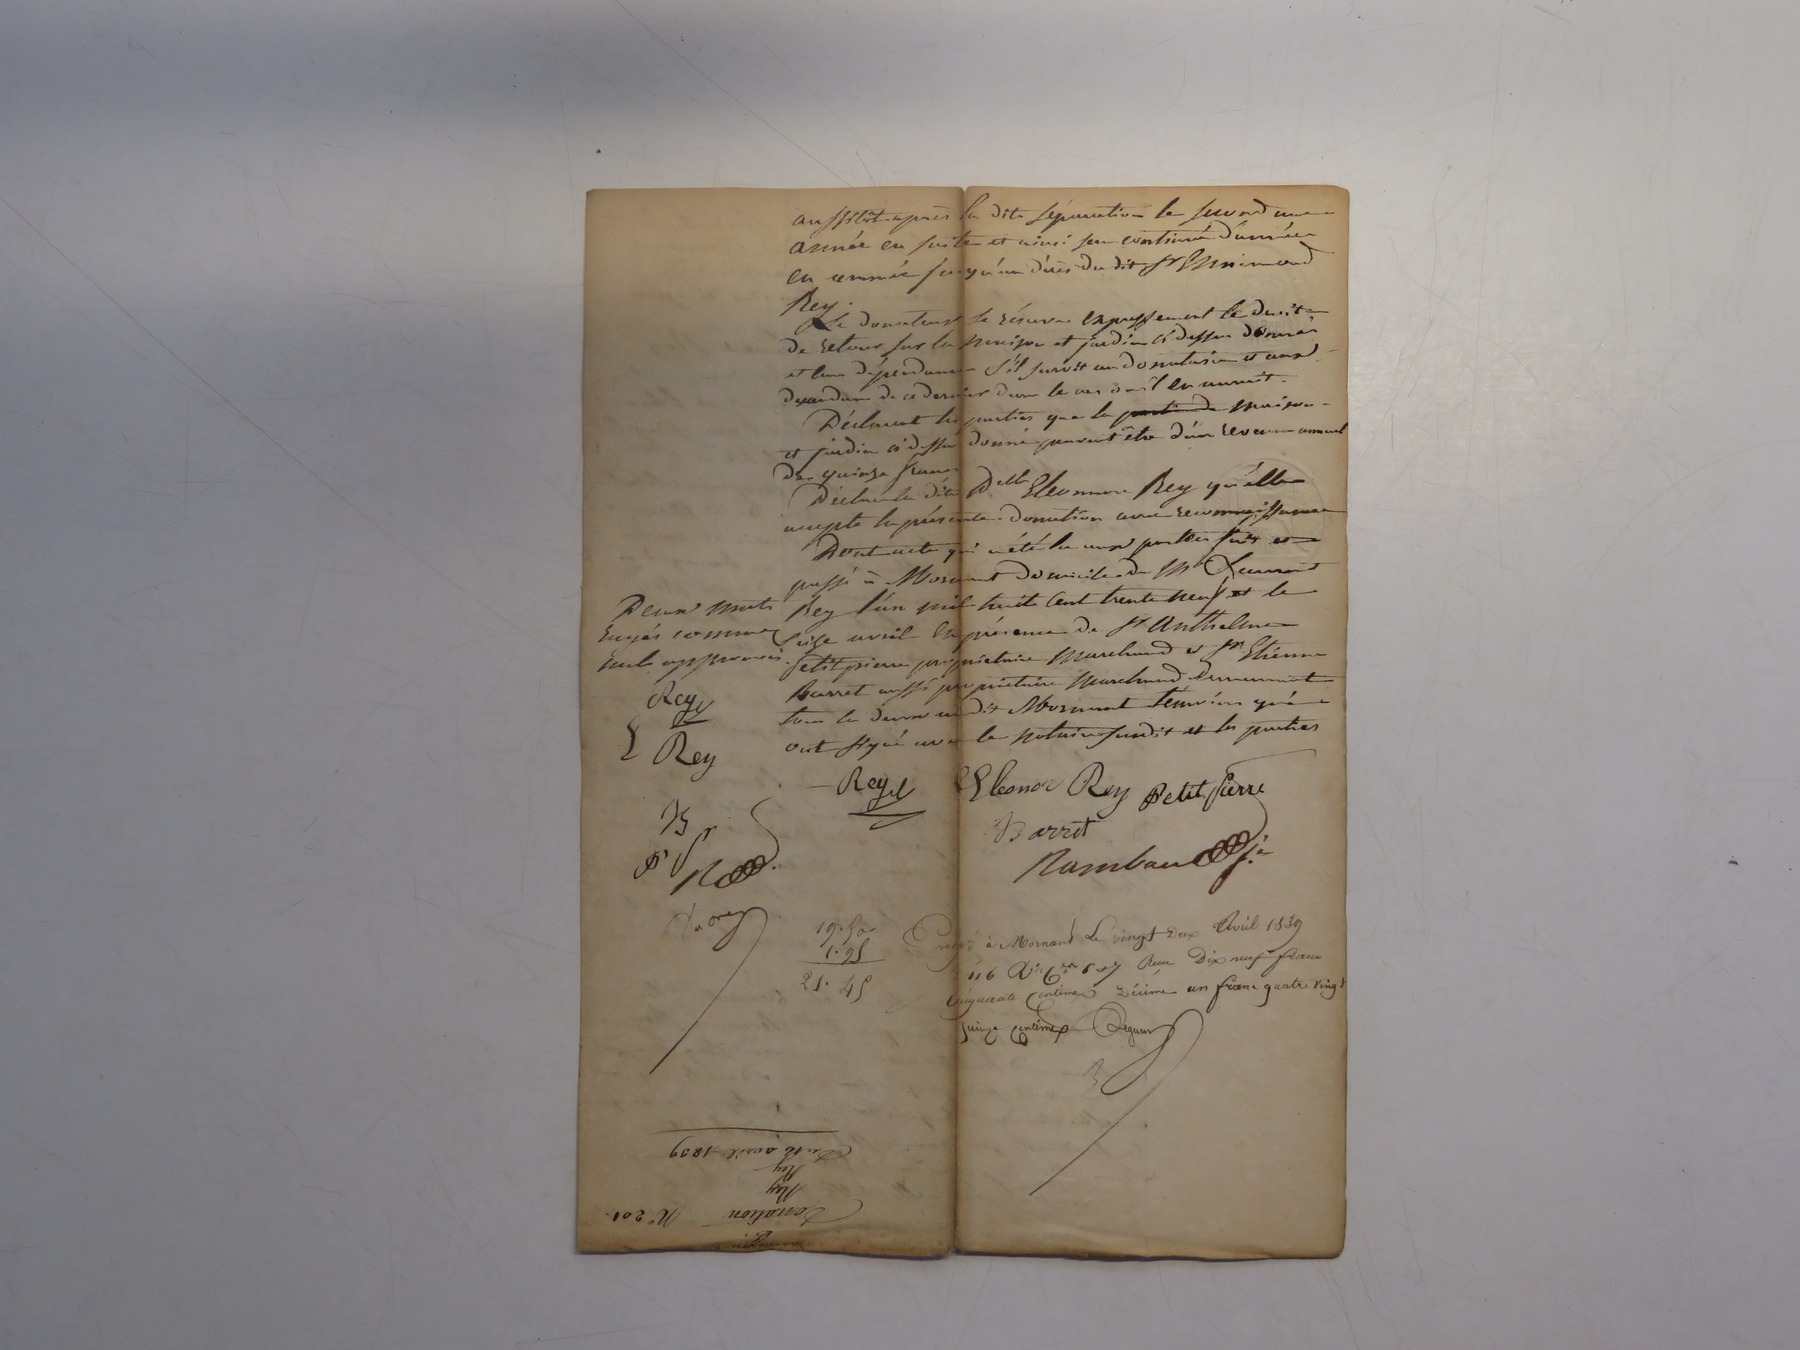 aussitôt après la dite séparation le second une
année en suite et ainsi sera continué d'année
en année jusqu'au décès du dit Sr Ennemond
Rey.
Le donateur se réserve expressement le droit
de retour sur la maison et jardin ci dessus donnés
et leurs dépendances s'il survit au donataire et aux
descendans de ce dernier dans le cas où il en auroit.
Déclarent les parties que la partie de maison
et jardin ci dessus donné peuvent être d'un revenu annuel
de quinze francs
Déclare la dite Delle Eleonore Rey qu'elle
accepte la présente donation avec reconnaissance
Dont acte qui a été lu aux parties fait et
passé à Mornant domicile de Mr Laurent
Rey l'an mil huit cent trente neuf et le
seize avril en présence de Sr Anthelme
Petitpierre propriétaire marchand et Sr Etienne
Barret aussi propriétaire marchand demeurant
tous les deux au dit Mornant témoins qui
ont signé avec le notaire susdit et les parties
Deux mots
rayés comme
nuls approuvés.
Rey
E Rey
B
P Pr
R
Rey Eleonor Rey Petit pierre
Barret
Rambaud je
19.50
1.95
21.45
à Mornant Le vingt deux Avril 1839
116 Reçu Dix neuf francs
Cinquante centimes Décime un franc quatre vingt
quinze centimes
N° 201.
Donation
Rey
Rey
Du 16 avril 1839